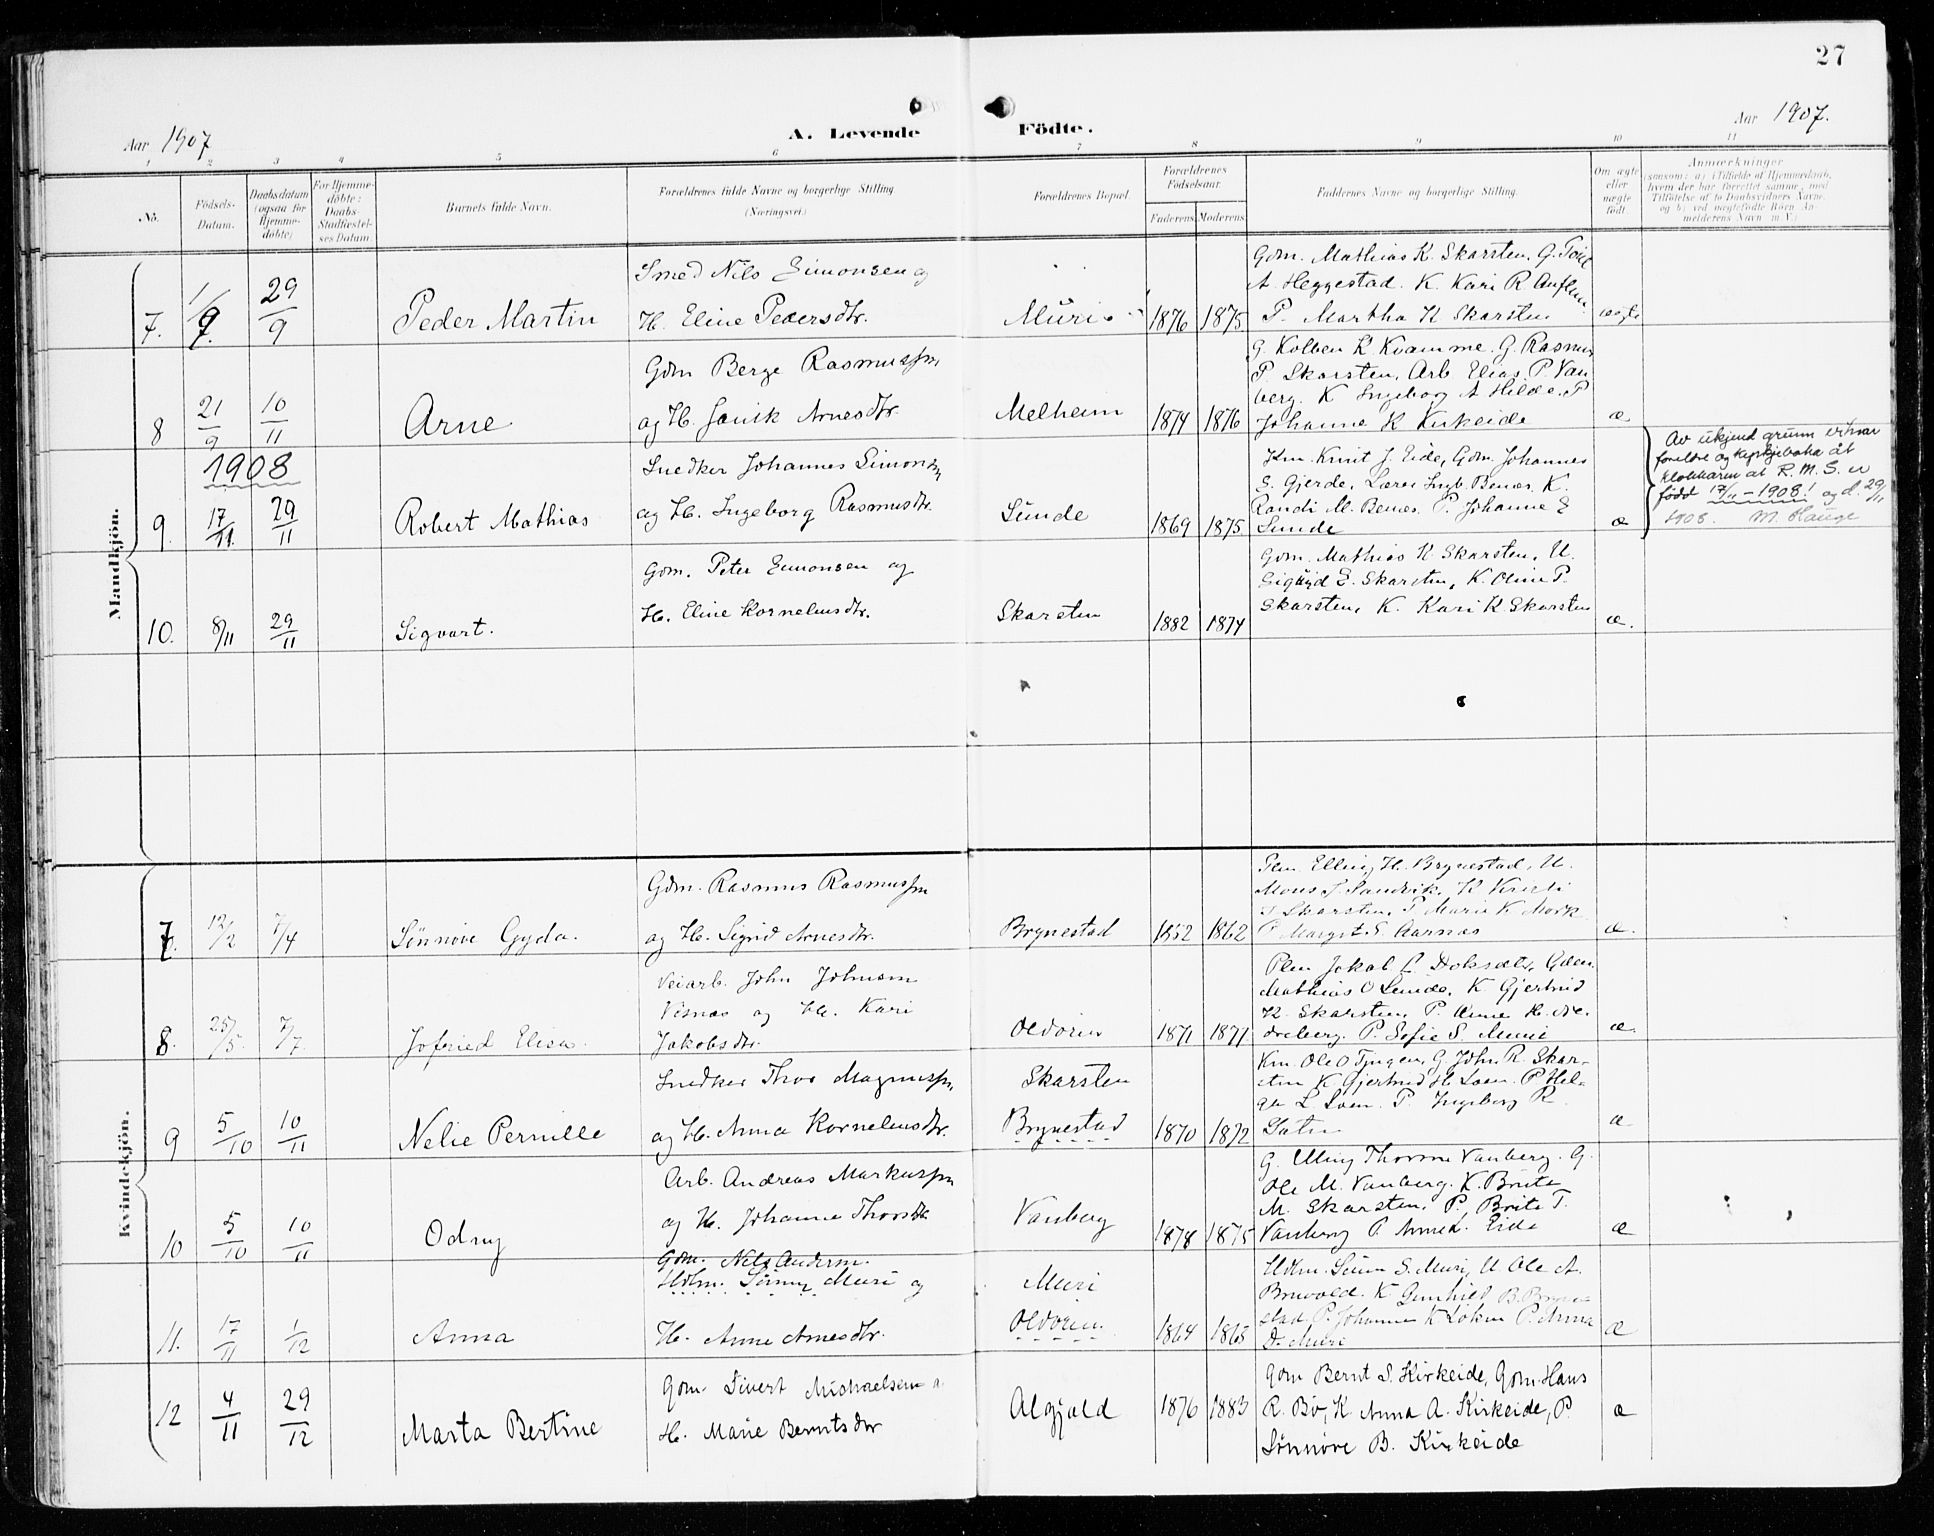 27
Aar 1907
A. Levende Födte.
Aar 1907.
1 2 3 4 5 6 7 8 9 10 11
No.
Födsels-
Datum.
Daabsdatum
(ogsaa for
Hjemme-
döbte)
For Hjemme-
döbte:
Daabs-
Stadfæstel-
ses Datum
Barnets fulde Navn.
Forældrenes fulde Navne og borgerlige Stilling
(Næringsvei.)
Forældrenes Bopæl.
Forældrenes
Födselsaar.
Faderens Moderens
Faddernes Navne og borgerlige Stilling.
Om ægte
eller
uægte
födt.
Anmærkninger
(saasom: a) i Tilfælde af Hjemmedaab,
hvem der har forrettet samme, med
Tilföielse af to Daabsvidners Navne,
og b) ved uægtefödte Börn An-
melderens Navn m. V.)
Mandkjön.
7. 1/9 29/9 Peder Martin
Smed Nils Simonsen og
H. Eline Pedersdtr.
Muri 1876 1875
Gdm. Mathias K. Skarsten, G.
A. Heggestad. K. Kari R
P. Martha K Skarsten
ægte
8 21/9 10/11 Arne
Gdm Berge Rasmussen
og H. Arnesdtr.
Melheim 1874 1876
G. Kolben R Kvamme. G. Rasmus
P. Skarsten, Arb Elias P. Van
berg. K Ingeborg A Hilde. P
Johanne K Kirkeide
æ
1908
9. 17/11. 29/11 Robert Mathias
Snedker Johannes Simonsen
og H. Ingeborg Rasmusdtr.
Sunde 1869 1875
Km. Knut J. Eide, Gdm. Johannes
S. Gjerde, Lærer Ingb. Benæs. K.
Randi M. Benæs. P. Johanne E
Sunde
æ
Av ukjend grunn
foreldre og
klokkaren at R. M. S. er
född 17/11-1908! og d. 29/11
1908. M. Hauge
10. 8/11 29/11 Sigvart.
Gdm. Peter Simonsen og
H. Eline Korneliusdtr.
Skarsten 1882 1874
Gdm. Mathias K. Skarsten, U.
Sigurd E. Skarsten, K. Oline P.
Skarsten, K. Kari K Skarsten
æ.
Kvindekjön.
7. 12/2 7/4 Sönnöve Gyda.
Gdm. Rasmus Rasmussen
og H. Sigrid Arnesdtr.
Brynestad 1852 1862
Elling H. Brynestad, U.
Mons S. Sandvik, K Kristi
Skarsten, P Marie K. Mork
P Margit S. Aarnæs
æ.
8. 25/5 7/7. Jofried Elisa.
Veiarb. John Johnsen
Visnæs og H. Kari
Jakobsdtr.
Oldören 1871 1877
Jakob L.
Mathias O Sunde, K Gjertrud
K. Skarsten, P. Anne
P. Sofie S. Muri
æ.
9 5/10 10/11 Nelie Pernille
Snedker Thor Magnussen
og H. Anna Kornelinsdtr.
Skarsten
Brynestad 1870 1872
Km. Ole O Tjugen, G. John R. Skar-
sten K Gjertrud H. Loen. P Hel-
ge L Loen. P. Ingeborg R.
Sætre
æ
10 5/10 10/11 Odny
Arb. Andreas Markussen
og H. Johanne Thorsdtr
Vanberg 1878 1875
G. Elling Thorsne Vanberg. G.
Ole M. Vanberg. K. Brite
M. Skarsten, P. Brite T.
Vanberg P. Anne L. Eide
æ
11. 17/11 1/12 Anna
Gdm. Nils Andersen.
Hdlm. Muri og
H. Anne Arnesdtr.
Muri
Oldören. 1864 1865
Hdlm. S. Muri, U. Ole A.
Bruvold. K Gunhild B.
stad P. Johanne K Löken P. Anna
D. Muri
æ
12 4/11 29/12 Marta Bertine
Gdm. Sivert Michaelsen
H. Marie Berntsdtr
Algjeld 1876 1883
Gdm Bernt S. Kirkeide, Gdm. Hans
R. Bö, K Anna A. Kirkeide, P.
Sönnöve B. Kirkeide
æ